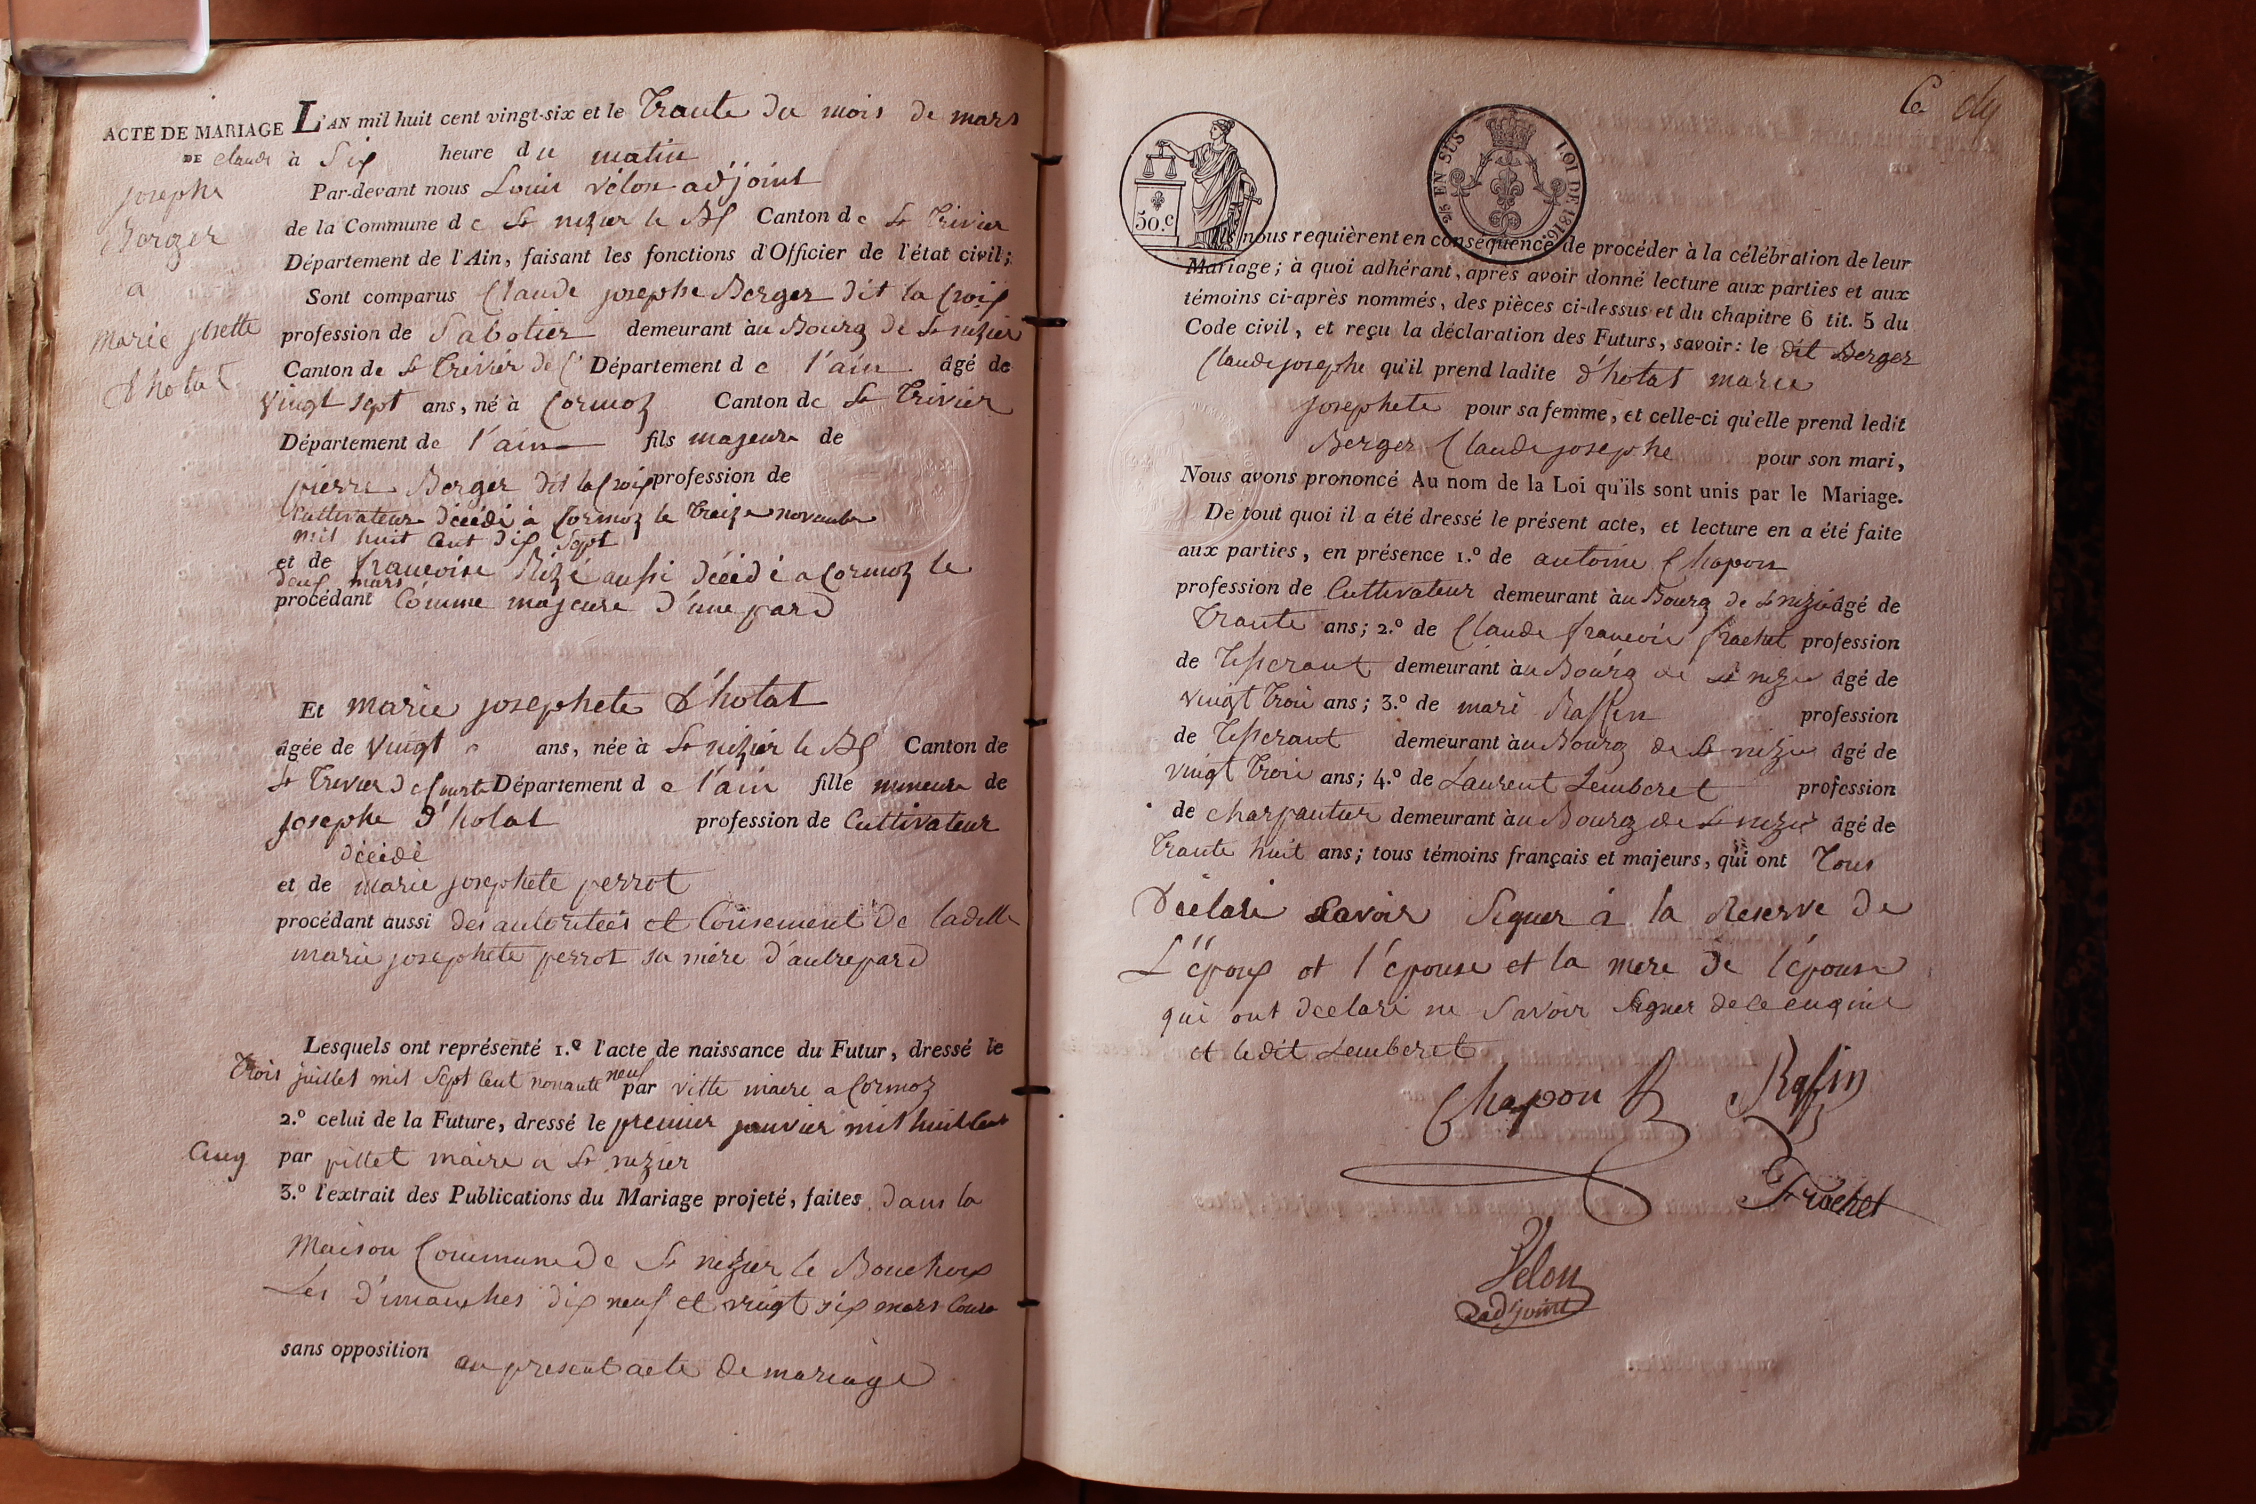 ACTE DE MARIAGE
DE Claude
josephe
Berger
a
marie josette
d'hotat
L'AN mil huit cent vingt-six et le Trante du mois de mars
à Six heure du matin
Par-devant nous Louis vélon adjoint
de la Commune de St nizier le Bl Canton de St Trivier
Département de l'Ain, faisant les fonctions d'Officier de l'état civil;
Sont comparus Claude josephe Berger dit la Croix
profession de Sabotier demeurant àu Bourg de St nizier
Canton de St Trivier de C Département de l'ain âgé de
Vingt sept ans, né à Cormoz Canton de St Trivier
Département de l'ain fils majeure de
pierre Berger dit la Croix profession de
Cultivateur décédé à Cormoz le Traize novembre
mil huit Cent dix Sept
et de francoise Rizé aussi décédé a Cormoz le
deux mars
procédant Comme majeure d'une pard
Et marie josephete d'hotat
âgée de Vingt ans, née à St nizier le Bl Canton de
St Trivier de Courte Département de l'ain fille mineure de
josephe d'hotat profession de Cultivateur
décédé
et de marie josephete perrot
procédant aussi des autoritées et Consement de ladite
marie josephete perrot sa mère d'autrepard
Lesquels ont représenté 1.º l'acte de naissance du Futur, dressé le
Trois juillet mil Sept Cent nonante neuf par vitte maire a Cormoz
2.º celui de la Future, dressé le premier janvier mil huit Cent
Cinq par pittet maire a St nizier
3.º l'extrait des Publications du Mariage projeté, faites dans la
Maison Commune de St nizier le Bouchoux
Les dimanches dix neuf et vingt six mars Coura
sans opposition au present acte de mariage
50.c
2/5 EN SUS LOI DE 1816
nous requièrent en conséquence de procéder à la célébration de leur
Mariage; à quoi adhérant, après avoir donné lecture aux parties et aux
témoins ci-après nommés, des pièces ci-dessus et du chapitre 6 tit. 5 du
Code civil, et reçu la déclaration des Futurs, savoir: le dit Berger
Claude josephe qu'il prend ladite d'hotat marie
josephete pour sa femme, et celle-ci qu'elle prend ledit
Berger Claude josephe pour son mari,
Nous avons prononcé Au nom de la Loi qu'ils sont unis par le Mariage.
De tout quoi il a été dressé le présent acte, et lecture en a été faite
aux parties, en présence 1.º de antoine Chapon
profession de Cultivateur demeurant àu Bourg de St nizié âgé de
Trante ans; 2.º de Claude francois frachet profession
de Tisserant demeurant àu Bourg de St nizie âgé de
vingt Trois ans; 3.º de mari Raffin profession
de Tisserant demeurant àu Bourg de St nizie âgé de
vingt Trois ans; 4.º de Laurent Lemberet profession
de charpantier demeurant àu Bourg de St nizie âgé de
Trante huit ans; tous témoins français et majeurs, qui ont Tous
Déclaré Savoir Signer a la Reserve de
L'époux et l'épouse et la mere de l'épouse
qui ont declaré ne Savoir Signer de ce enquis
et ledit Lemberet
Chapon Raffin
Frachet
Velon
adjoint